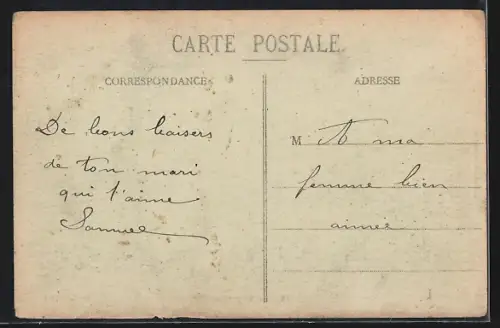 CARTE POSTALE
CORRESPONDANCE
De bons baisers
de ton mari
qui t'aime
Samuel
ADRESSE
M A ma
femme bien
aimée